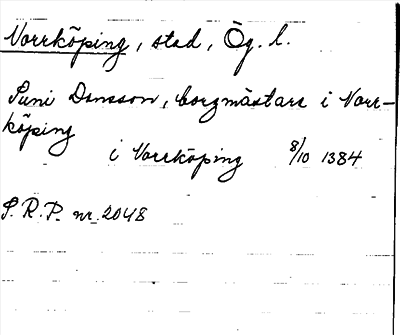 Norrköping, stad, Ög. l.
Suni Donsson, borgmästare i Norr-
köping
i Norrköping 8/10 1384
S.R.P. nr. 2048